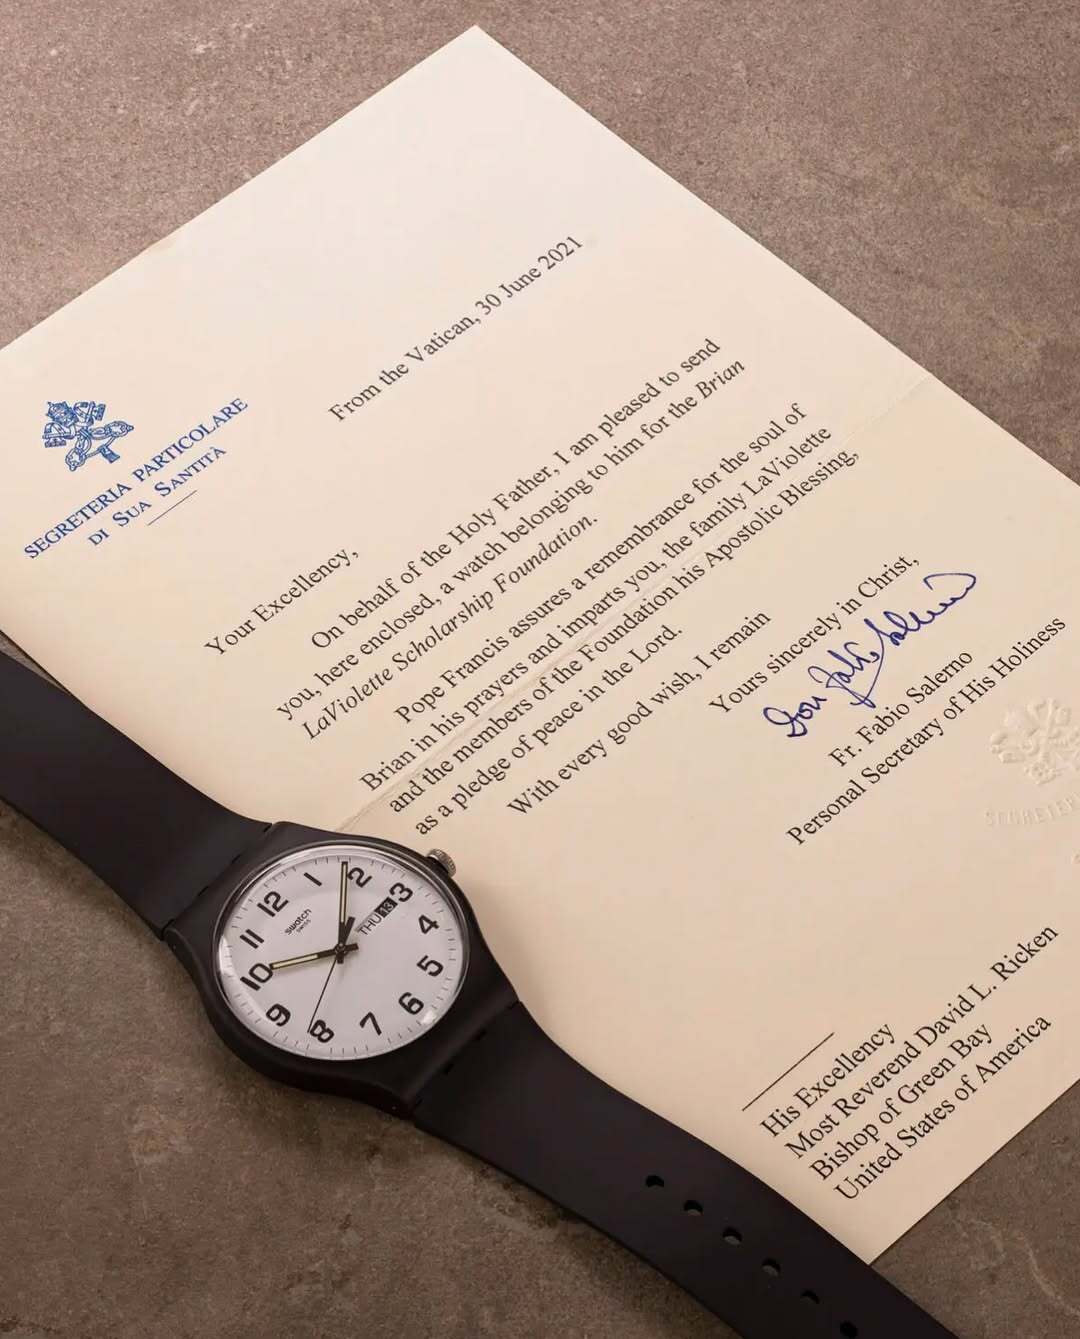 SEGRETERIA PARTICOLARE
DI SUA SANTITÀ
From the Vatican, 30 June 2021
Your Excellency,
On behalf of the Holy Father, I am pleased to send
you, here enclosed, a watch belonging to him for the Brian
LaViolette Scholarship Foundation.
Pope Francis assures a remembrance for the soul of
Brian in his prayers and imparts you, the family LaViolette
and the members of the Foundation his Apostolic Blessing,
as a pledge of peace in the Lord.
With every good wish, I remain
Yours sincerely in Christ,
Fr. Fabio Salerno
Personal Secretary of His Holiness
His Excellency
Most Reverend David L. Ricken
Bishop of Green Bay
United States of America
swatch
SWISS
THU 13
12
1
2
3
4
5
6
7
8
9
10
11